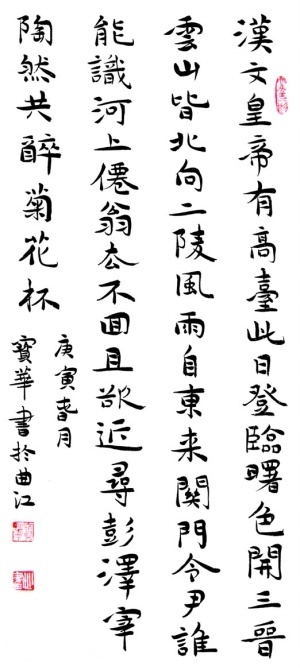 漢文皇帝有高臺此日登臨曙色開三晉
雲山皆北向二陵風雨自東来關門令尹誰
能識河上僊翁去不囬且欲近尋彭澤宰
陶然共醉菊花杯
庚寅春月
寶華書於曲江